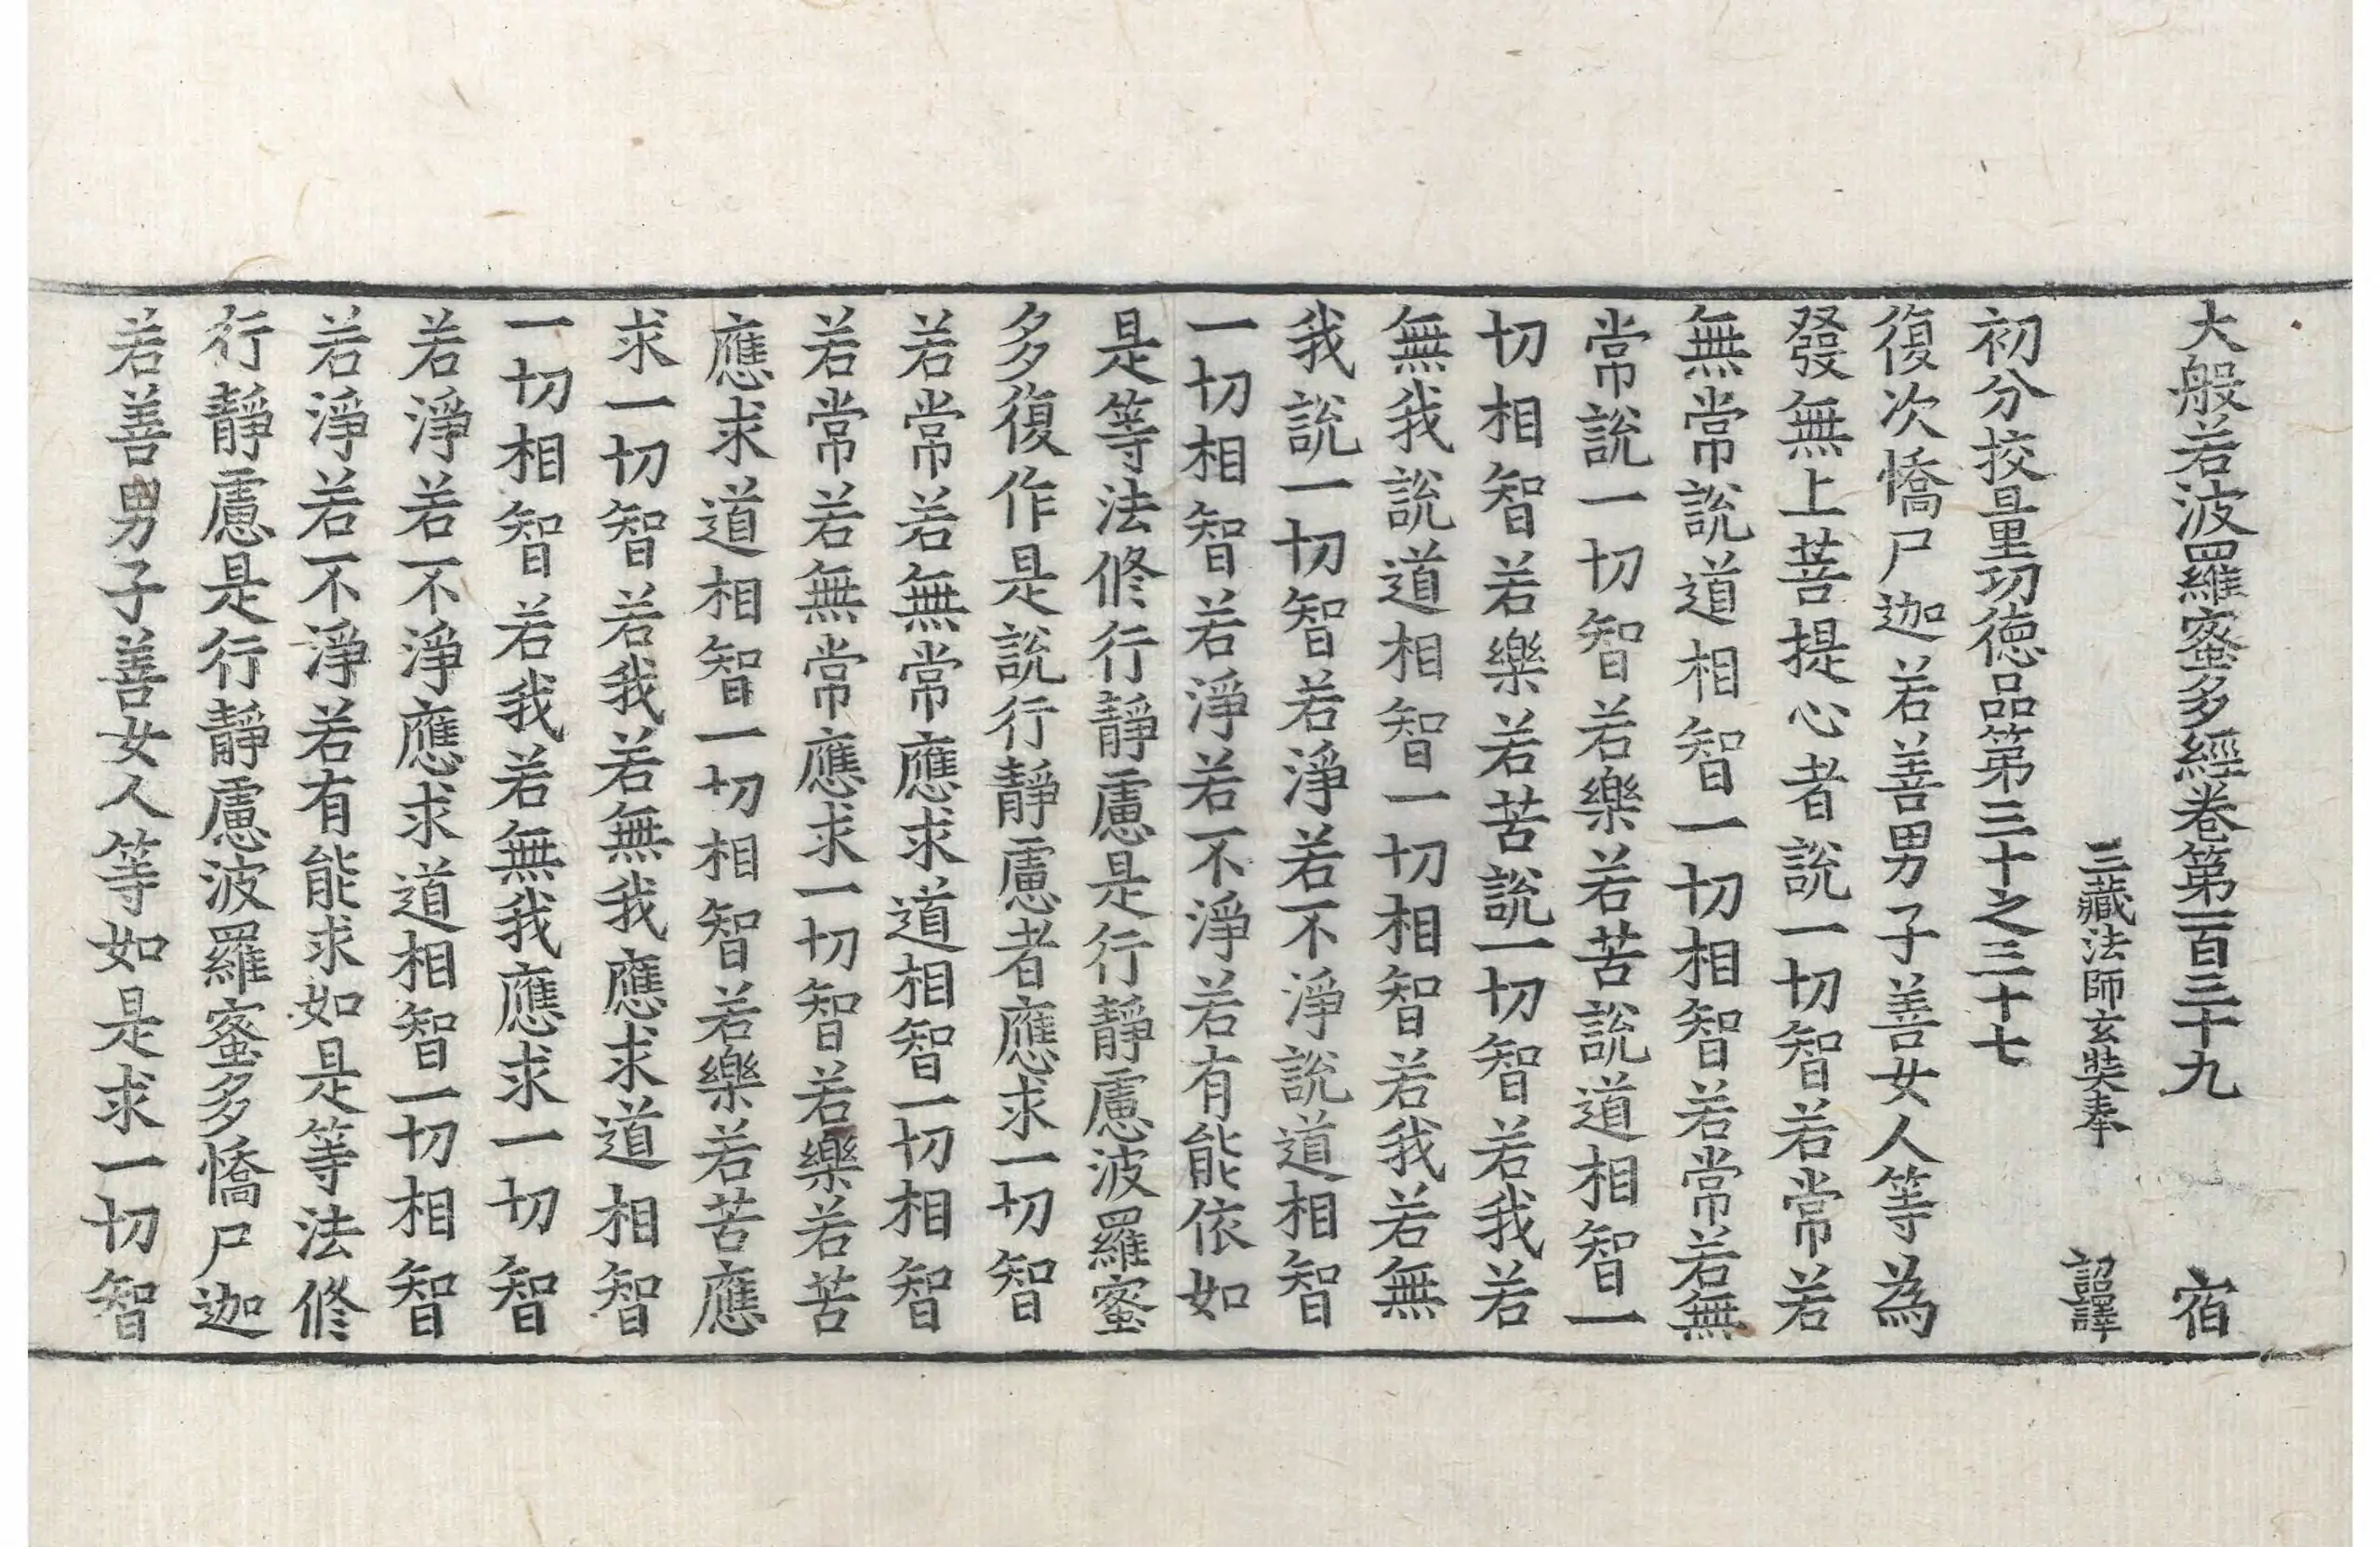 大般若波羅蜜多經卷第一百三十九 宿
三藏法師玄奘奉 詔譯
初分挍量功德品第三十之三十七
復次憍尸迦若善男子善女人等為
發無上菩提心者說一切智若常若
無常說道相智一切相智若常若無
常說一切智若樂若苦說道相智一
切相智若樂若苦說一切智若我若
無我說道相智一切相智若我若無
我說一切智若淨若不淨說道相智
一切相智若淨若不淨若有能依如
是等法修行靜慮是行靜慮波羅蜜
多復作是說行靜慮者應求一切智
若常若無常應求道相智一切相智
若常若無常應求一切智若樂若苦
應求道相智一切相智若樂若苦應
求一切智若我若無我應求道相智
一切相智若我若無我應求一切智
若淨若不淨應求道相智一切相智
若淨若不淨若有能求如是等法修
行靜慮是行靜慮波羅蜜多憍尸迦
若善男子善女人等如是求一切智